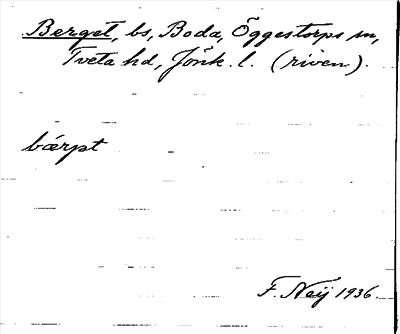 Berget, bs, Boda, Öggestorps sn,
Tveta hd, Jönk. l. (riven).
bǽrpt
F. Neij 1936.